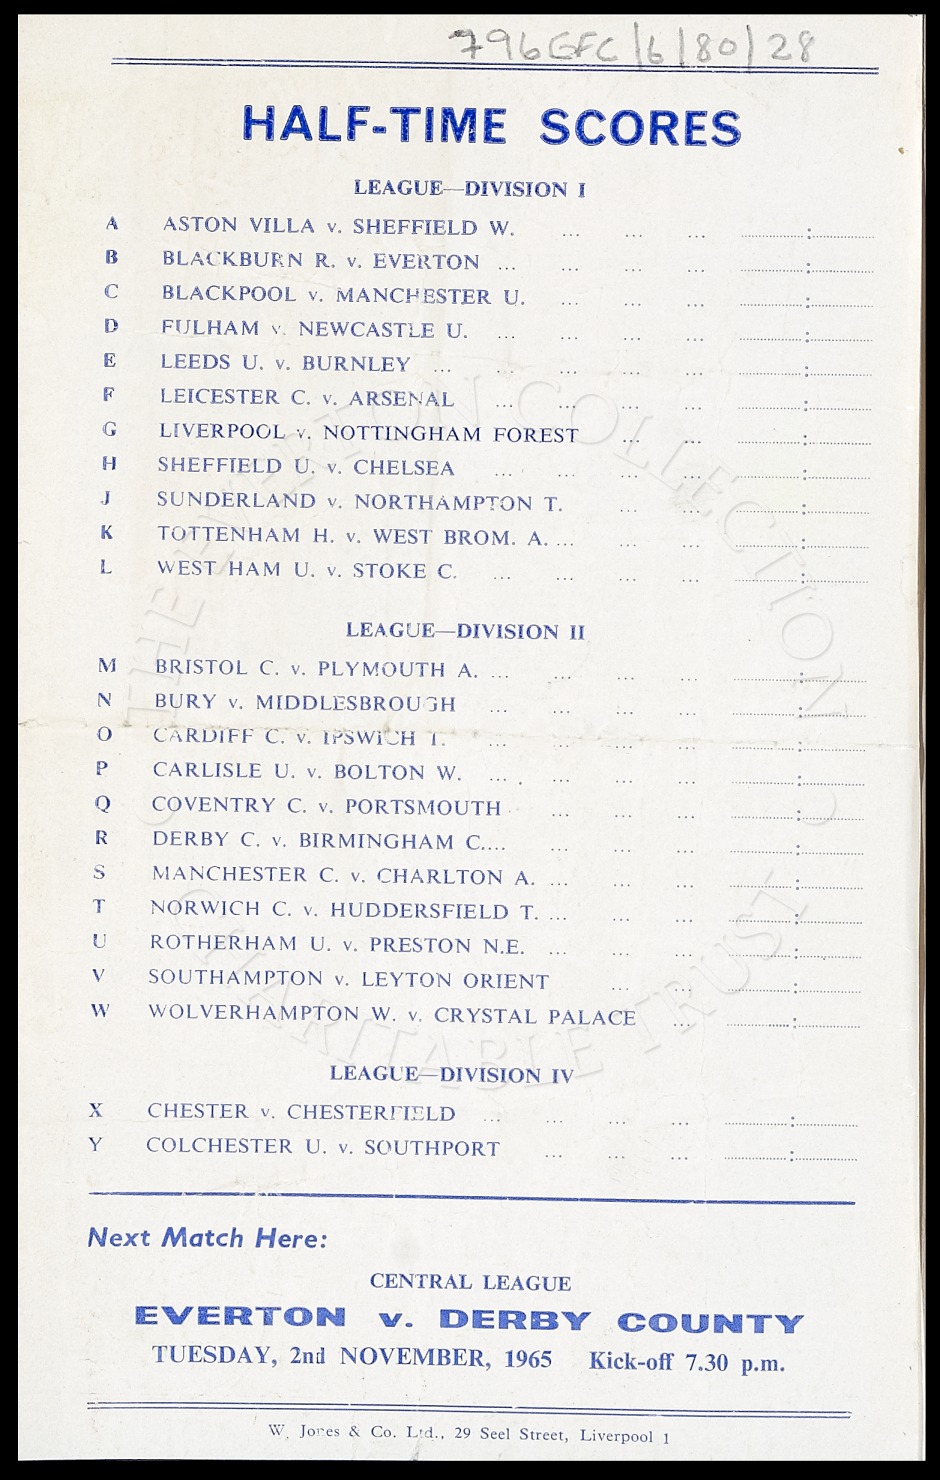 796EFC/6/80/28
HALF-TIME SCORES
LEAGUE—DIVISION I
A ASTON VILLA v. SHEFFIELD W. ... ... ... :
B BLACKBURN R. v. EVERTON ... ... ... ... :
C BLACKPOOL v. MANCHESTER U. ... ... ... :
D FULHAM v. NEWCASTLE U. ... ... ... ... :
E LEEDS U. v. BURNLEY ... ... ... ... ... :
F LEICESTER C. v. ARSENAL ... ... ... ... :
G LIVERPOOL v. NOTTINGHAM FOREST ... ... :
H SHEFFIELD U. v. CHELSEA ... ... ... ... :
J SUNDERLAND v. NORTHAMPTON T. ... ... :
K TOTTENHAM H. v. WEST BROM. A. ... ... ... :
L WEST HAM U. v. STOKE C. ... ... ... ... :
LEAGUE—DIVISION II
M BRISTOL C. v. PLYMOUTH A. ... ... ... ... :
N BURY v. MIDDLESBROUGH ... ... ... ... :
O CARDIFF C. v. IPSWICH T. ... ... ... ... :
P CARLISLE U. v. BOLTON W. ... ... ... ... :
Q COVENTRY C. v. PORTSMOUTH ... ... ... :
R DERBY C. v. BIRMINGHAM C.... ... ... ... :
S MANCHESTER C. v. CHARLTON A. ... ... ... :
T NORWICH C. v. HUDDERSFIELD T. ... ... ... :
U ROTHERHAM U. v. PRESTON N.E. ... ... ... :
V SOUTHAMPTON v. LEYTON ORIENT ... ... :
W WOLVERHAMPTON W. v. CRYSTAL PALACE ... :
LEAGUE—DIVISION IV
X CHESTER v. CHESTERFIELD ... ... ... ... :
Y COLCHESTER U. v. SOUTHPORT ... ... ... :
Next Match Here:
CENTRAL LEAGUE
EVERTON v. DERBY COUNTY
TUESDAY, 2nd NOVEMBER, 1965 Kick-off 7.30 p.m.
W. Jones & Co. Ltd., 29 Seel Street, Liverpool 1
THE EVERTON COLLECTION
CHARITABLE TRUST